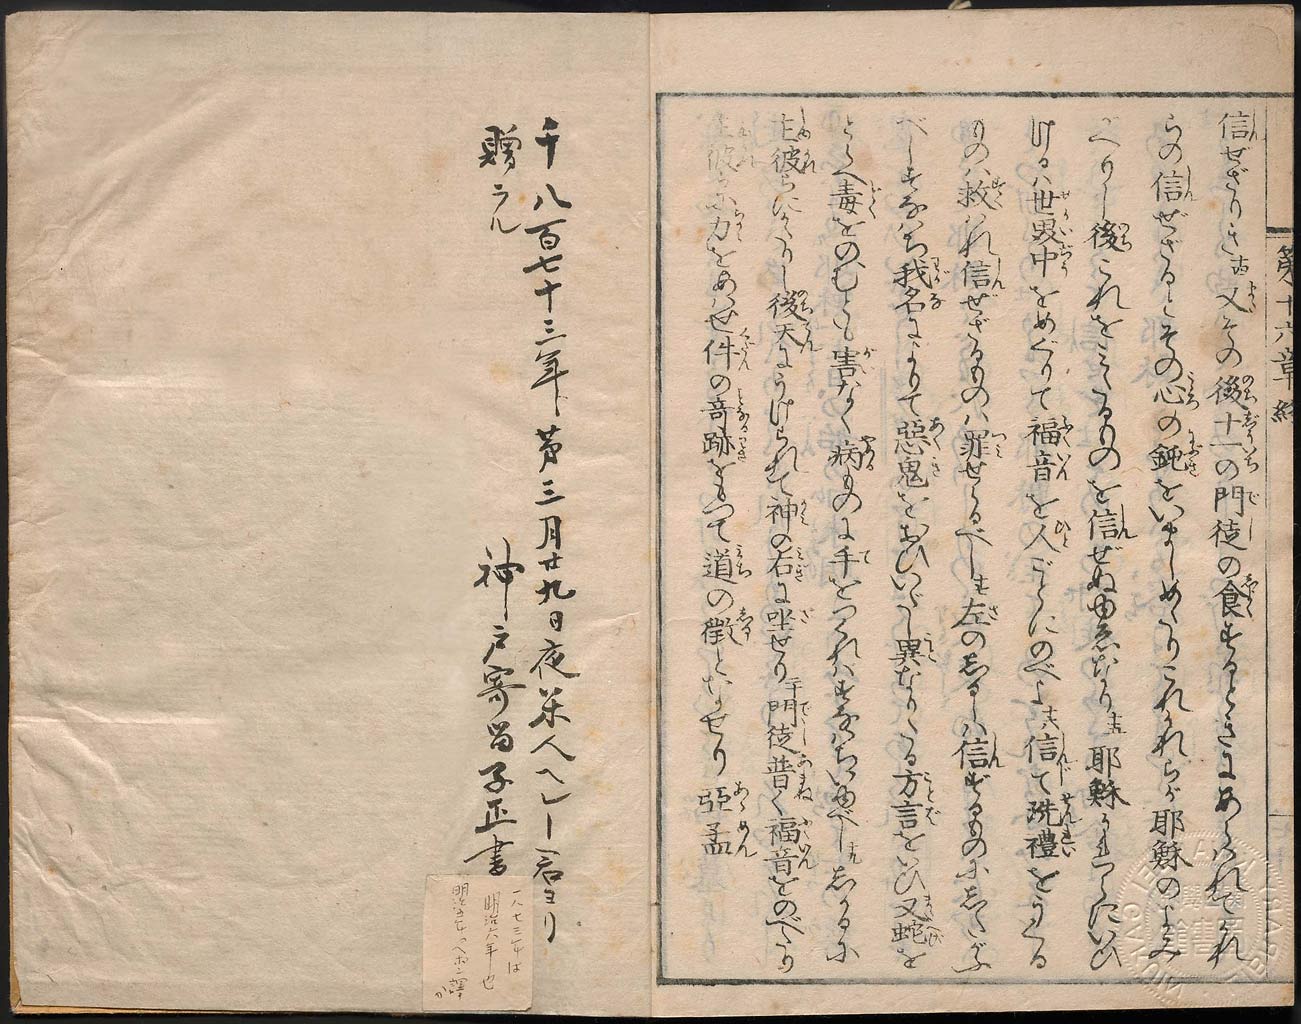 第十六章終
信ぜざりき十四又その後十一の門徒の食するときにあらはれてかれ
らの信ぜざるとその心の鈍をいましめたりこれかれらが耶穌のよみ
がへりし後これをみたるものを信ぜぬゆゑなり十五耶穌かれらにいひ
けるハ世界中をめぐりて福音を人ごとにのべよ十六信て洗禮をうくる
ものハ救はれ信ぜざるものハ罪せらるべし十七左のしるしハ信ずるものにしたがふ
べしすなハち我名によりて惡鬼をおひいだし異なりたる方言をいひ又蛇を
とらへ毒をのむとも害なく病ものに手をつくれハすなハちいゆべし十九しかるに
主彼らにかたりし後天にうけられて神の右に坐せり二十門徒普く福音をのべたり
主彼らに力をあハせ件の奇跡をもつて道の徴となせり 亞孟
千八百七十三年第三月廿九日夜米人ヘレー君ヨリ
贈ラル
神戸寄留子正書
一八七三年は
明治六年也
明治五年ヘボン譯か